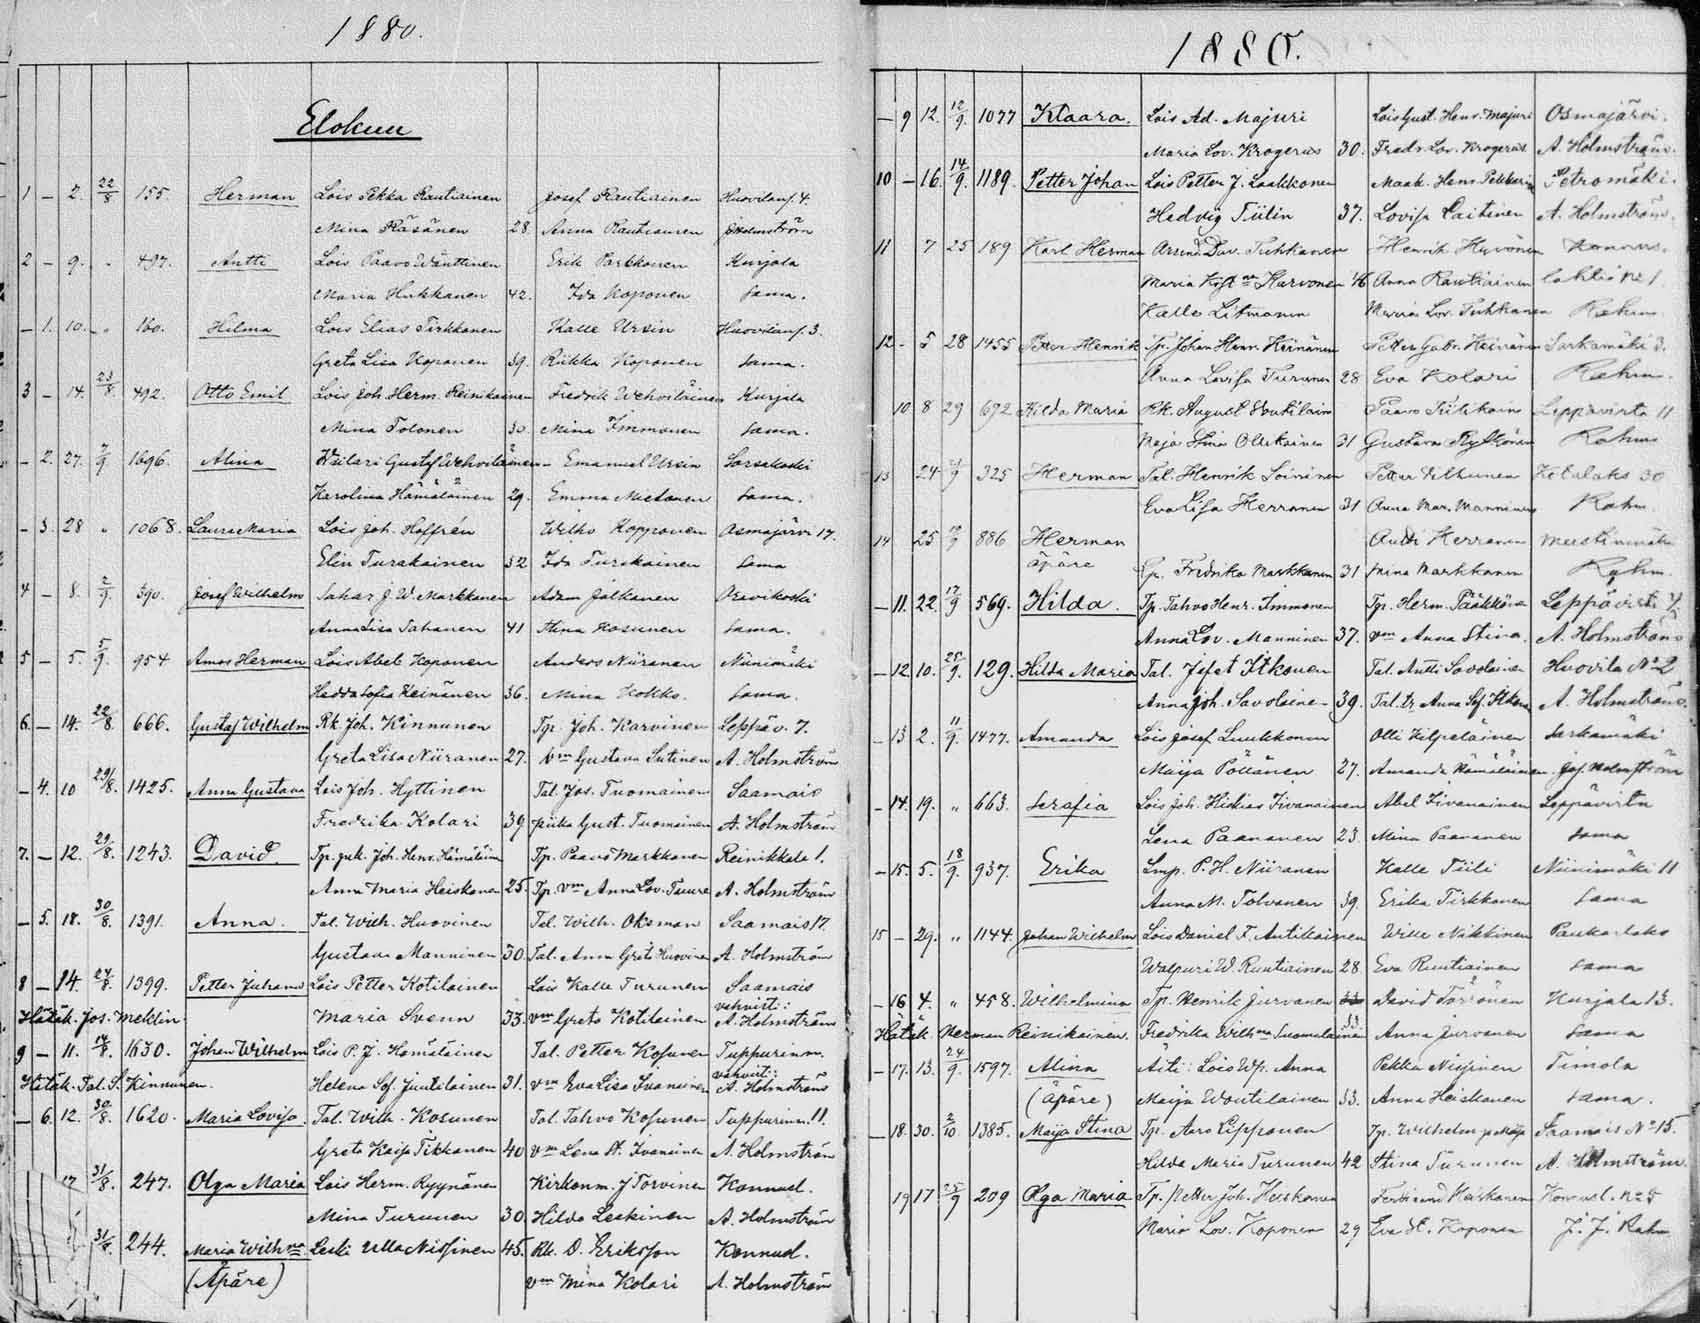 1880.
Elokuu
1 - 2. 22/8 155. Herman Lois Pekka Rautiainen Josef Rautiainen Huovilanj. 4.
Mina Räsänen 28. Anna Rautiainen Holmström
2 - 9. " 437. Antti Lois Paavo Wänttinen Erik Parkkonen Kurjala
Maria Hukkanen 42. Ida Koponen sama.
- 1. 10. - " 160. Hilma Lois Elias Tirkkonen Kalle Ursin Huovilanj. 3.
Greta Lisa Koponen 39. Riikka Koponen sama.
3 - 14. 23/8. 492. Otto Emil Lois Joh. Herm. Reinikainen Fredrik Wehviläinen Kurjala
Mina Tolonen 30. Mina Immonen sama.
- 2. 27. 7/9 1696. Alina Gustaf Wehviläinen Emanuel Ursin Sorsakoski
Karolina Hämäläinen 29. Emma sama.
- 3. 28 " 1068. Laura Maria Lois Joh. Hoffrén Wilho Kopponen Osmajärvi 17.
Elin Turakainen 32 Ida Turakainen sama
4 - 8. 2/9. 390. Josef Wilhelm J. W. Markkanen Adam Jalkanen Oravikoski
Anna Lisa Tahanen 41 Stina Kosunen sama.
5 - 5. 5/9. 954. Amos Herman Lois Abel Koponen Anders Niiranen Niinimäki
Hedda Sofia Heinänen 36. Mina Kokko. sama.
6. - 14. 22/8. 666. Gustaf Wilhelm Rk Joh. Kinnunen Tp. Joh. Karvinen Leppäv. 7.
Greta Lisa Niiranen 27. vm Gustava Sutinen A. Holmström
- 4. 10 29/8. 1425. Anna Gustava Lois Joh. Hyttinen Tal. Jos. Tuomainen Saamais
Fredrika Kolari 39 piika Gust. Tuomainen A. Holmström
7. - 12. 29/8. 1243. David. Tp. Joh. Henr. Hämäläin Tp. Paavo Markkanen Reinikkala 1.
Anna Maria Heiskanen 25. Tp. vm Anna Lov. Tuure A. Holmström
- 5. 18. 30/8. 1391. Anna. Tal. Wilh. Huovinen Tal. Wilh. Oksman Saamais 17.
Gustava Manninen 30. Tal. Anna Gret. Huovinen A. Holmström
8 - 14. 24/8. 1399. Petter Juhana Lois Petter Kotilainen Lois Kalle Turunen Saamais
Hätäk. Jos. Meklin Maria Svenn 33. vm Greta Kotilainen vahvist.: A. Holmström
9 - 11. 14/8. 1630. Johan Wilhelm Lois P. J. Hämäläinen Tal. Petter Kosunen Tuppurinm.
Hätäk. Tal. S. Kinnunen. Helena Sof. Juutilainen 31. vm Eva Lisa Ivanainen vahvist.: A. Holmström
- 6. 12. 30/8. 1620. Maria Lovisa. Tal. Wilh. Kosunen Tal. Tahvo Kosunen Tuppurinm. 11.
Greta Kaisa Tikkanen 40 vm Lena St. Ivanainen A. Holmström
31/8. 247. Olga Maria Lois Herm. Ryynänen Kirkonm. J Torvinen Konnusl.
Mina Turunen 30. Hilda Leskinen A. Holmström
31/8. 244. Maria Wilhna Leski Ulla Nissinen 45. Rk. O. Eriksson Konnusl.
(Äpäre) vm Mina Kolari A. Holmström
1880.
- 9 12. 12/9. 1077 Klaara. Lois Ad. Majuri Lois Gust. Henr. Majuri Osmajärvi.
Maria Lov. Krogerus 30. Fredr. Lov. Krogerus A. Holmström.
10 - 16. 14/9. 1189. Petter Johan Lois Petter J. Laakkonen Maak. Henr. Pekkarin Petromäki.
Hedvig Tiilin 37. Lovisa Laitinen A. Holmström.
11 7 25 189 Karl Herman Dav. Tuhkanen Henrik Hyvönen
Maria Karvonen Anna Rautiainen lahti No 1
Kalle Litmanen Maria Lov. Tuhkanen Rahm
12 - 5 28 1455 Petter Henrik Tp. Johan Henr. Heinänen Petter Gabr. Heinänen Sarkamäki 3.
Anna Lovisa Turunen 28 Eva Kolari Rahm.
10 8 29 672 Hilda Maria Rk. August Voutilain Paavo Leppävirta 11
Stina Ollikainen 31 Gustava Rytkönen Rahm
13 24 325 Herman Tal. Henrik Soininen Petter Vilhunen Kotalaks 30
Eva Lisa Herranen 31 Anna Mar. Manninen Rahm.
14 25 886 Herman Antti Herranen Mustinmäki
äpäre Fredrika Markkanen 31 Mina Markkanen Rahm.
- 11. 22. 17/9 569. Hilda. Tp. Tahvo Henr. Immonen Tp. Herm. Pääkkönen Leppävirta
Anna Lov. Manninen 37. vm Anna Stina. A. Holmström
- 12. 10. 25/9. 129. Hilda Maria Tal. Jafet Itkonen Tal. Antti Savolainen Huovila No 2
Anna Joh. Savolaine- 39. Tal. tr Anna Sof. Itkonen A. Holmström.
- 13 2. 11/9. 1477. Amanda Lois Josef Luukkonen Olli Kilpeläinen Sarkamäki
Maija Pöllänen 27. Amanda Hämäläinen Jos. Holmström
- 14. 19. " 663. Serafia Lois Joh. Hiskias Iivanainen Abel Iivanainen Leppävirta
Lena Paananen 23. Mina Paananen sama
- 15. 5. 18/9. 937. Erika Lmp. P. H. Niiranen Kalle Tiili Niinimäki 11
Anna M. Tolvanen 39. Erika Tirkkonen sama
15 - 29. " 1144. Johan Wilhelm Lois Daniel F. Antikainen Wille Nikkinen Paukarlaks
Walpuri W. Ruutiainen 28. Eva Ruutiainen sama
- 16 4. " 458. Wilhelmina Tp. Henrik Jurvanen David Torvönen Kurjala 13.
Hätäk. Herman Reinikainen. Fredrika Wilhna Suomalainen 33 Anna Jurvanen sama
- 17. 13. 24/9. 1597. Alina Äiti: Lois Wp. Anna Pekka Nissinen Timola
(Äpäre) Maija Woutilainen 33. Anna Heiskanen sama.
- 18. 30. 2/10. 1385. Maija Stina Tp. Aaro Lipponen Tp. Wilhelm ja Maija Saamais No 15.
Hilda Maria Turunen 42 Stina Turunen A. Holmström.
19 17 25/9 209 Olga Maria Tp. Petter Joh. Heiskanen Ferdinand Heiskanen Konnusl. No 5
Maria Lov. Koponen 29 Eva St. Koponen J. J. Rahm